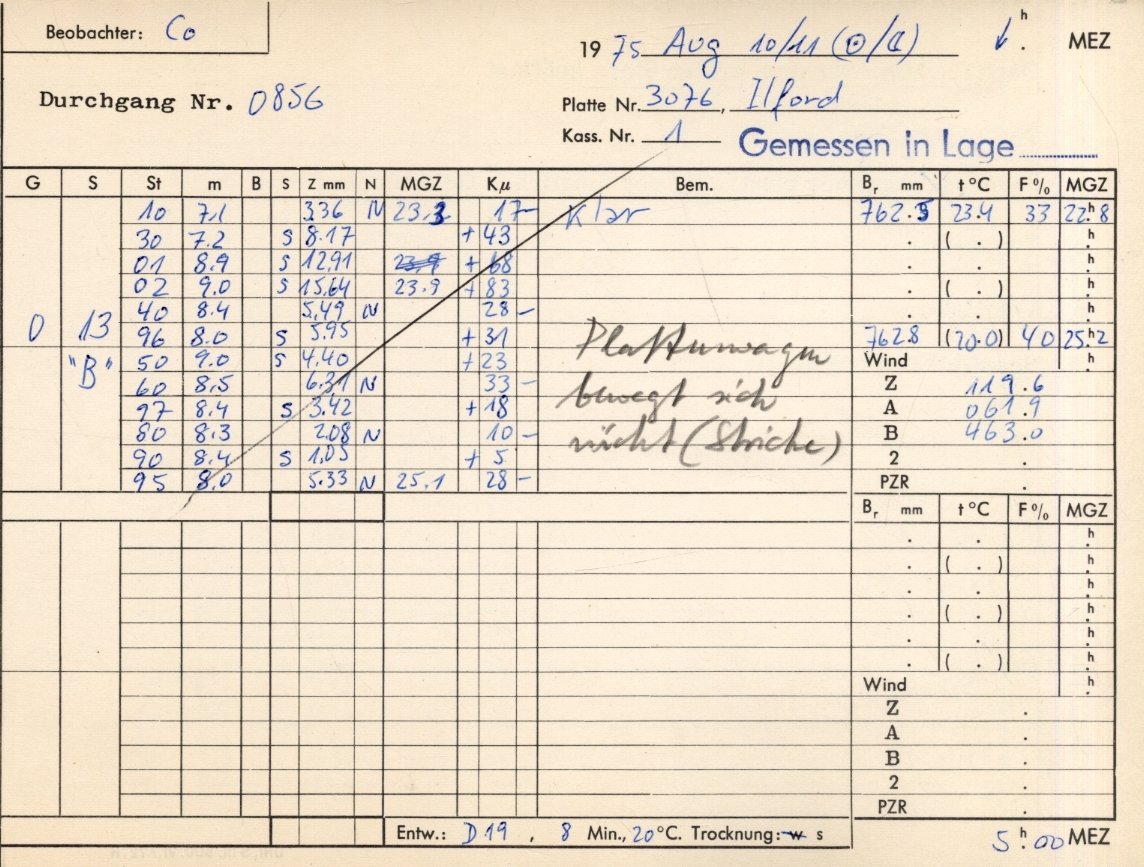 Beobachter: Co
19 75 Aug 10/11 (⊙/☾) h . MEZ
Durchgang Nr. 0856
Platte Nr. 3076, Ilford
Kass. Nr. 1 Gemessen in Lage
G S St m B S Z mm N MGZ Kµ Bem. Br mm t °C F % MGZ
10 7.1 3.36 N 23.3 17- Klar 762.5 23.4 33 22h.8
30 7.2 S 8.17 +43 . ( . ) .h
01 8.9 S 12.91 23.9 +68 . .h
02 9.0 S 15.64 23.9 +83 . ( . ) .h
40 8.4 5.49 N 28- . .h
0 13 96 8.0 S 5.95 +31 Plattenwagen 762.8 (20.0) 40 25h.2
"B" 50 9.0 S 4.40 +23 Wind .h
60 8.5 6.31 N 33- bewegt sich Z 119.6
97 8.4 S 3.42 +18 A 061.9
80 8.3 2.08 N 10- nicht (Striche) B 463.0
90 8.4 S 1.05 +5 2 .
95 8.0 5.33 N 25.1 28- PZR .
Br mm t °C F % MGZ
. .h
. ( . ) .h
. .h
. ( . ) .h
. .h
. ( . ) .h
Wind .h
Z .
A .
B .
2 .
PZR .
Entw.: D19, 8 Min., 20°C. Trocknung: w s 5h.00 MEZ